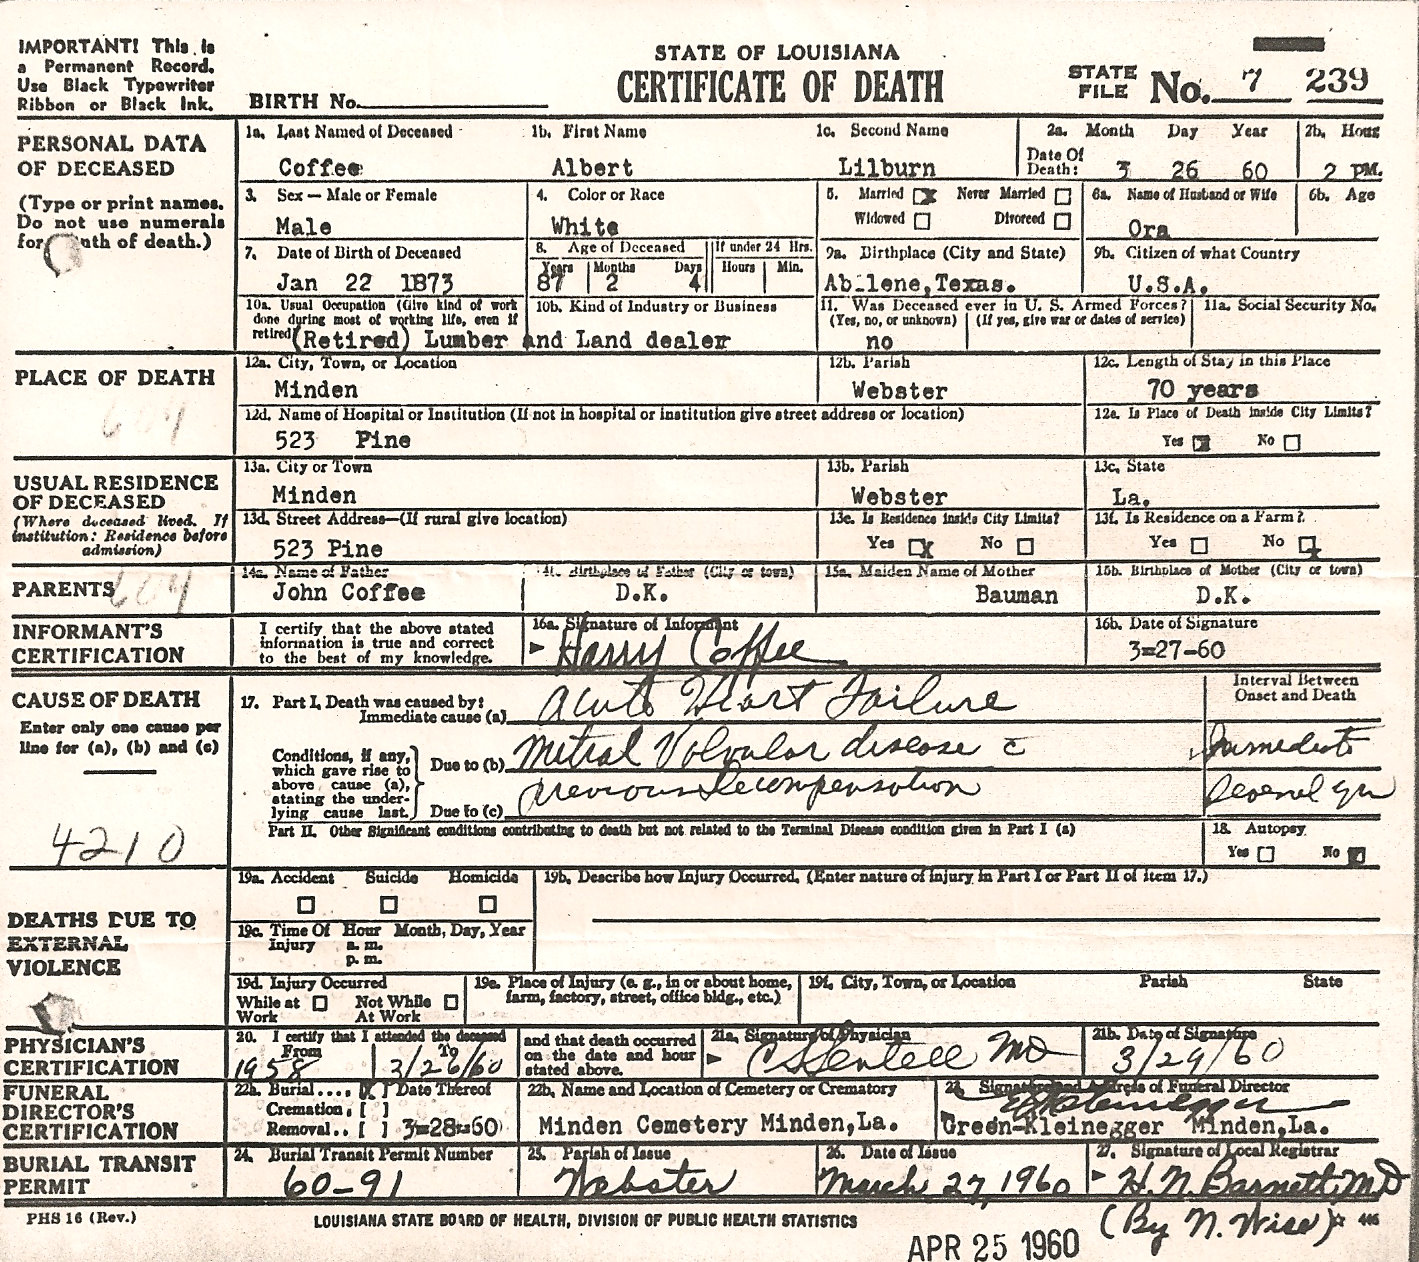 IMPORTANT! This is
a Permanent Record.
Use Black Typewriter
Ribbon or Black Ink.
STATE OF LOUISIANA
CERTIFICATE OF DEATH
BIRTH No.
STATE FILE No. 7 239
PERSONAL DATA
OF DECEASED
(Type or print names.
Do not use numerals
for of death.)
1a. Last Named of Deceased 1b. First Name 1c. Second Name 2a. Month Day Year 2b. Hour
Coffee Albert Lilburn Date Of Death: 3 26 60 2 PM.
3. Sex — Male or Female 4. Color or Race 5. Married [x] Never Married [ ] 6a. Name of Husband or Wife 6b. Age
Male White Widowed [ ] Divorced [ ] Ora
7. Date of Birth of Deceased 8. Age of Deceased If under 24 Hrs. 9a. Birthplace (City and State) 9b. Citizen of what Country
Years Months Days Hours Min.
Jan 22 1873 87 2 4 Abilene,Texas. U.S.A.
10a. Usual Occupation (Give kind of work done during most of working life, even if retired) 10b. Kind of Industry or Business 11. Was Deceased ever in U. S. Armed Forces? 11a. Social Security No.
(Yes, no, or unknown) (If yes, give war or dates of service)
(Retired) Lumber and Land dealer no
PLACE OF DEATH
604
12a. City, Town, or Location 12b. Parish 12c. Length of Stay in this Place
Minden Webster 70 years
12d. Name of Hospital or Institution (If not in hospital or institution give street address or location) 12e. Is Place of Death inside City Limits?
523 Pine Yes [x] No [ ]
USUAL RESIDENCE
OF DECEASED
(Where deceased lived. If
institution: Residence before
admission)
13a. City or Town 13b. Parish 13c. State
Minden Webster La.
13d. Street Address—(If rural give location) 13e. Is Residence inside City Limits? 13f. Is Residence on a Farm?
523 Pine Yes [x] No [ ] Yes [ ] No [x]
PARENTS 604
14a. Name of Father Birthplace of Father (City or town) 15a. Maiden Name of Mother 15b. Birthplace of Mother (City or town)
John Coffee D.K. Bauman D.K.
INFORMANT'S
CERTIFICATION
I certify that the above stated
information is true and correct
to the best of my knowledge.
16a. Signature of Informant 16b. Date of Signature
Harry Coffee 3-27-60
CAUSE OF DEATH
Enter only one cause per
line for (a), (b) and (c)
4210
17. Part I. Death was caused by: Interval Between Onset and Death
Immediate cause (a) Acute Heart Failure
Conditions, if any,
which gave rise to
above cause (a),
stating the under-
lying cause last.
Due to (b) Mitral Valvular disease c Immediate
Due to (c) previous decompensation Several yrs
Part II. Other Significant conditions contributing to death but not related to the Terminal Disease condition given in Part I (a) 18. Autopsy
Yes [ ] No [x]
DEATHS DUE TO
EXTERNAL
VIOLENCE
19a. Accident Suicide Homicide 19b. Describe how Injury Occurred. (Enter nature of injury in Part I or Part II of item 17.)
19c. Time Of Injury Hour a. m. p. m. Month, Day, Year
19d. Injury Occurred 19e. Place of Injury (e. g., in or about home, farm, factory, street, office bldg., etc.) 19f. City, Town, or Location Parish State
While at Work [ ] Not While At Work [ ]
PHYSICIAN'S
CERTIFICATION
20. I certify that I attended the deceased
From To
1958 3/26/60
and that death occurred
on the date and hour
stated above.
21a. Signature of Physician 21b. Date of Signature
C S Sentell MD 3/29/60
FUNERAL
DIRECTOR'S
CERTIFICATION
22a. Burial.... [X] Date Thereof 22b. Name and Location of Cemetery or Crematory 23. Signature and Address of Funeral Director
Cremation. [ ]
Removal.. [ ] 3-28-60 Minden Cemetery Minden,La. Green-Kleinegger Minden,La.
BURIAL TRANSIT
PERMIT
24. Burial Transit Permit Number 25. Parish of Issue 26. Date of Issue 27. Signature of Local Registrar
60-91 Webster March 27, 1960 H. N. Barnett, MD
(By N. Wise)
PHS 16 (Rev.) LOUISIANA STATE BOARD OF HEALTH, DIVISION OF PUBLIC HEALTH STATISTICS
APR 25 1960